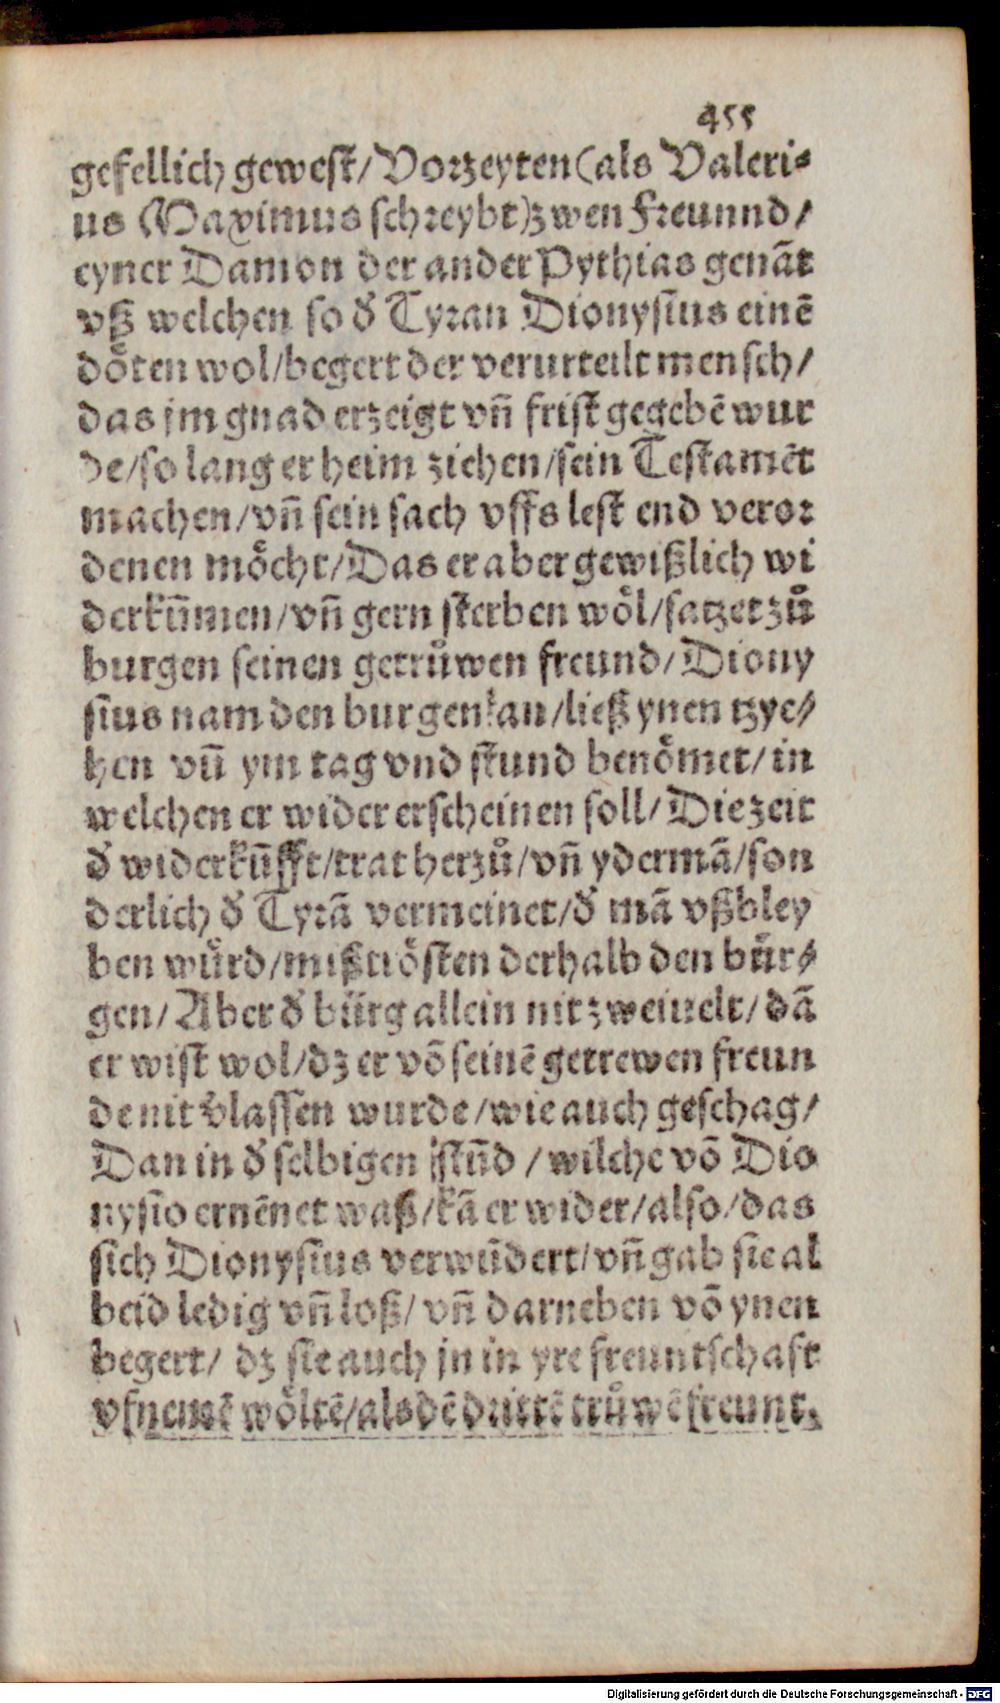 455
gefellich gewest/ Vorzeyten (als Valeri⸗
us Maximus schreybt) zwen Freunnd/
eyner Damon der ander Pythias genāt
vß welchen so d̄ Tyran Dionysius einē
döten wol/begert der verurteilt mensch/
das jm gnad erzeigt vn̄ frist gegebē wur
de/so lang er heim ziehen/sein Testamēt
machen/vn̄ sein sach vffs lest end veror
denen möcht/Das er aber gewißlich wi
derkūmen/vn̄ gern sterben wöl/satzet zů
burgen seinen getrůwen freund/Diony
sius nam den burgen an/ließ ynen tzye⸗
hen vn̄ ym tag vnd stund benömet/in
welchen er wider erscheinen soll/Die zeit
d̄ widerkūfft/trat herzů/vn̄ ydermā/son
derlich d̄ Tyrā vermeinet/d̄ mā vßbley
ben würd/mißtrösten derhalb den bür⸗
gen/Aber d̄ bürg allein nit zweiuelt/dā
er wist wol/dz er vō seinē getrewen freun
de nit v̄lassen wurde/wie auch geschag/
Dan in d̄ selbigen stūd/wilche vō Dio
nysio ernēnet waß/kā er wider/also/das
sich Dionysius verwūdert/vn̄ gab sie al
beid ledig vn̄ loß/vn̄ darneben vō ynen
begert/ dz sie auch jn in yre freuntschaft
vfnemē wöltē/als dē drittē trůwē freunt.
Digitalisierung gefördert durch die Deutsche Forschungsgemeinschaft - DFG